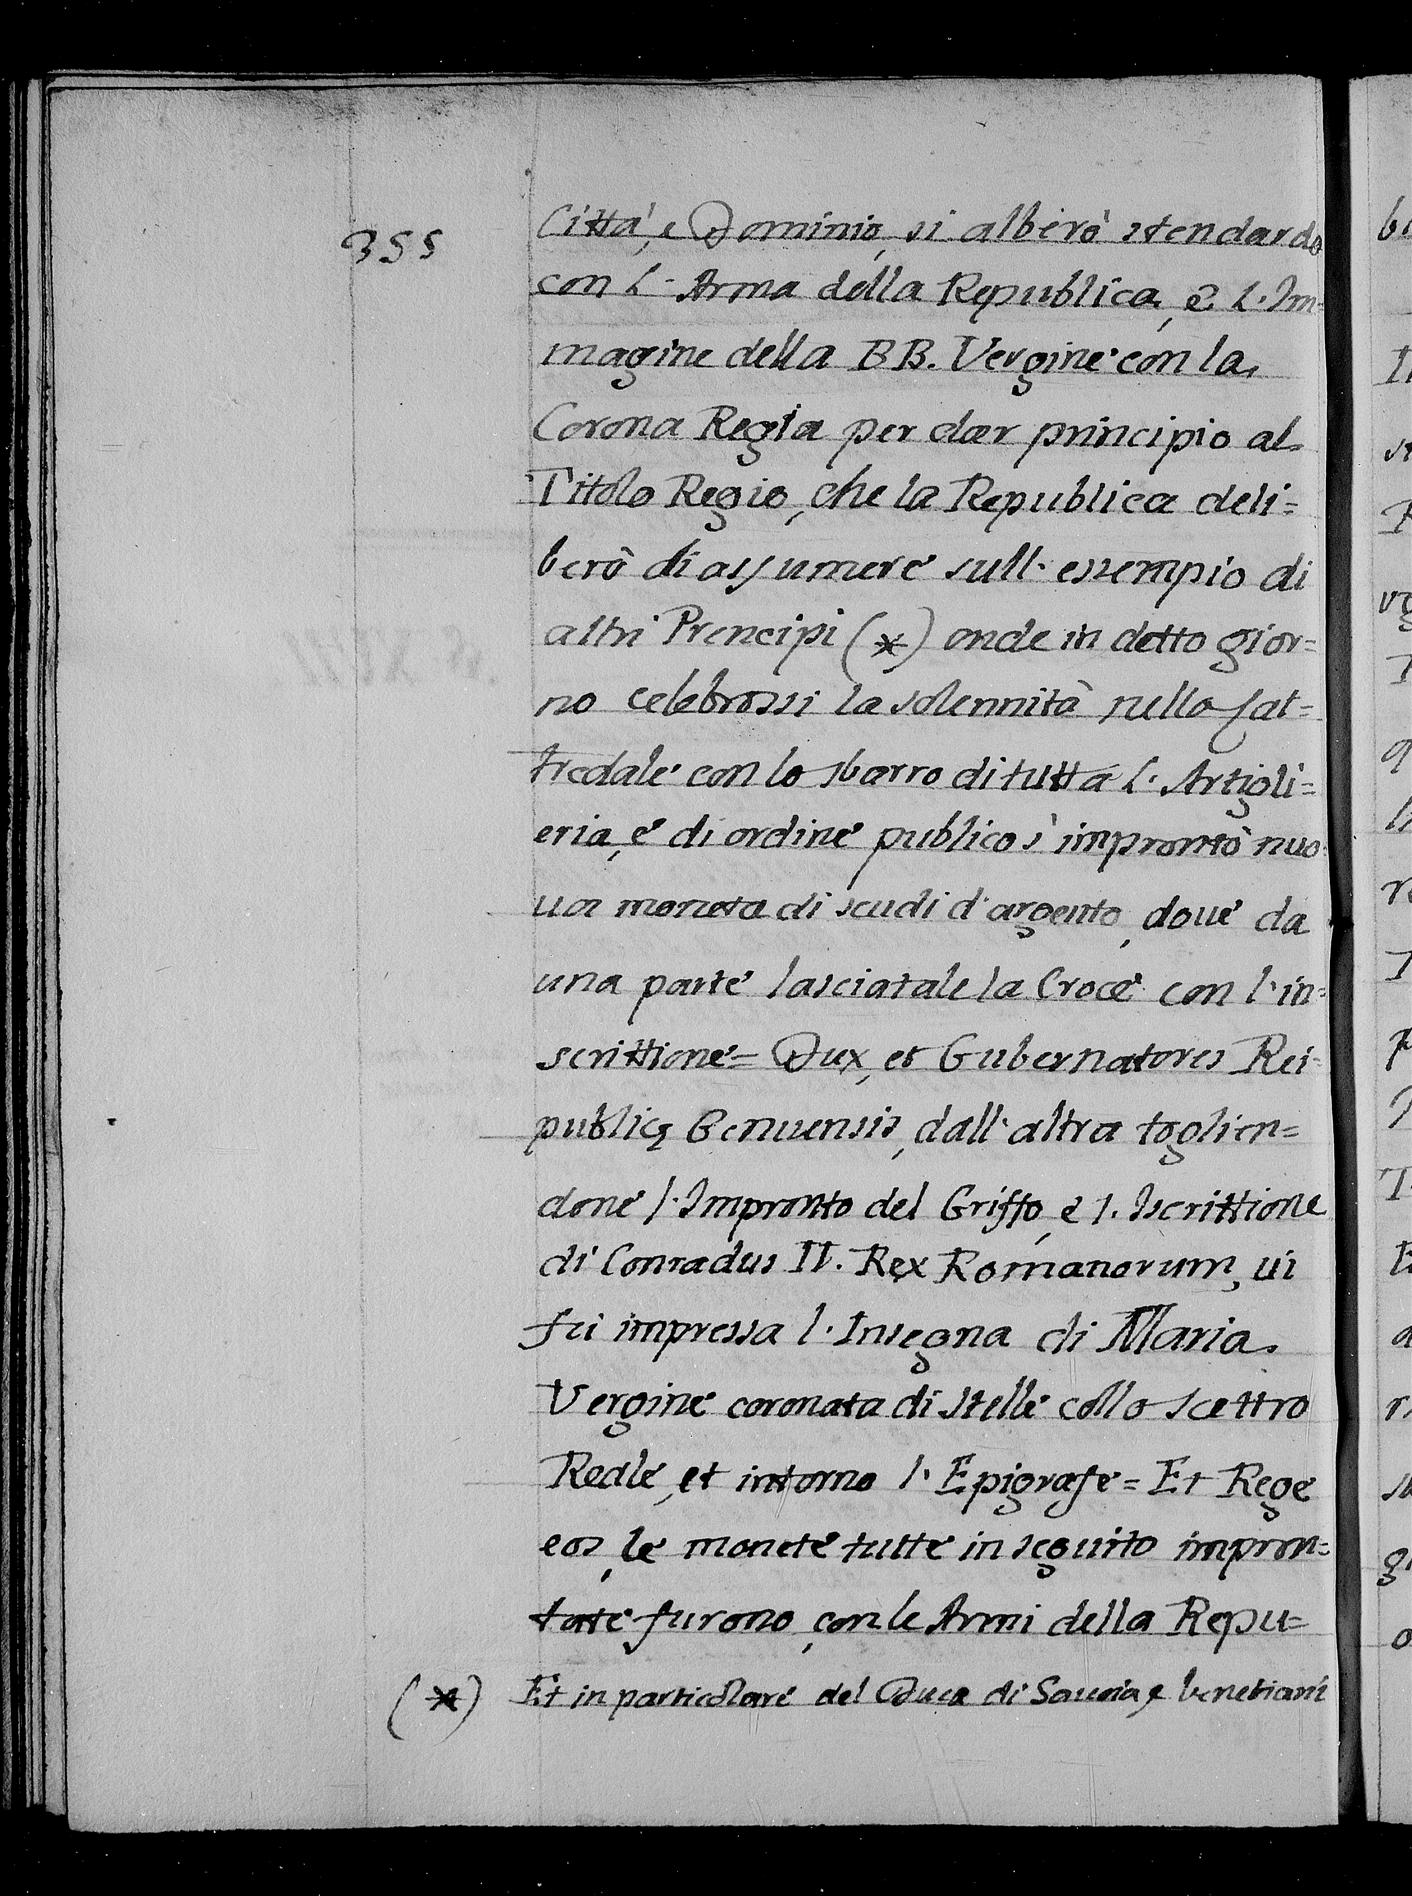 355
Città, e Dominio, si alberò stendardo
con l'Arma della Republica, e l'Im=
magine della BB. Vergine con la
Corona Regia per dar principio al
Titolo Regio, che la Republica deli=
berò di assumere sull'essempio di
altri Prencipi (*) onde in detto gior=
no celebrossi la solennità nella Cat=
tredale con lo sbarro di tutta l'Artigli=
eria, e di ordine publico s'improntò nuo
ua moneta di scudi d'argento, doue da
una parte lasciatale la Croce con l'in=
scrittione = Dux, et Gubernatores Rei=
publicę Genuensis, dall'altra toglien=
done l'Impronto del Griffo, e l'Iscrittione
di Conradus II. Rex Romanorum, ui
fu impressa l'Insegna di Maria
Vergine coronata di stelle collo scettro
Reale, et intorno l'Epigrafe = Et Rege
eos, le monete tutte in seguito impron=
tate furono, con le Armi della Repu=
(*) Et in particolare del Duca di Sauoia, e Venetiani